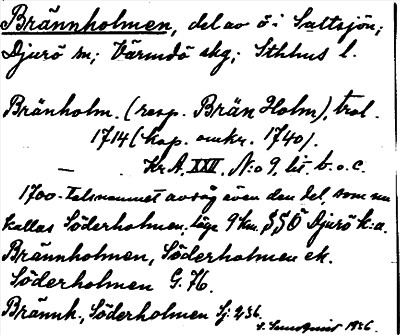 Brännholmen, del av ö i Saltsjön;
Djurö sn; Värmdö skg; Sthlms l.
Bränholm. (resp. Brän Holm), trol.
1714 (kop. omkr. 1740).
— Kr A, XXII, N:o 9, lit. b. o. c.
1700-talsnamnet avsåg även den del, som nu
kallas Söderholmen. Läge 9 km. SSÖ Djurö k:a.
Brännholmen, Söderholmen ek.
Söderholmen G. 76.
Brännh., Söderholmen Sj: 236.
1936.